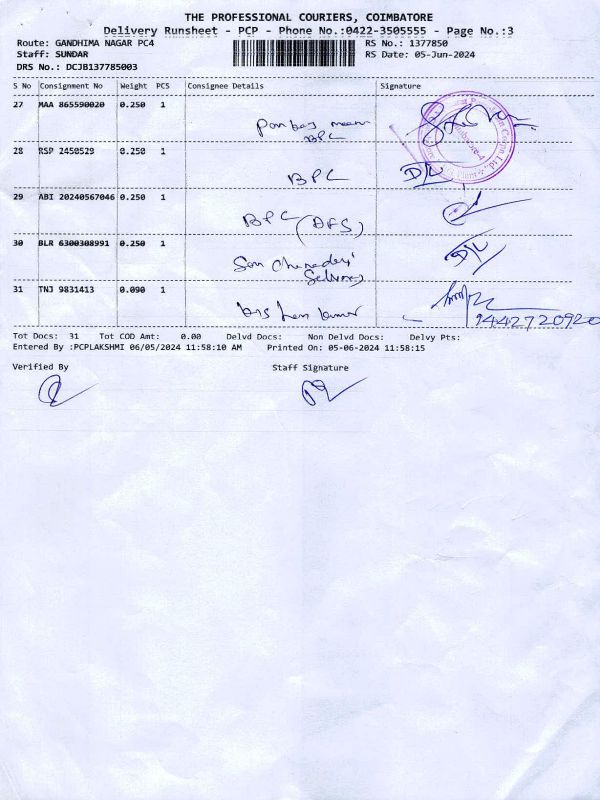 THE PROFESSIONAL COURIERS, COIMBATORE
Delivery Runsheet - PCP - Phone No.:0422-3505555 - Page No.:3
Route: GANDHIMA NAGAR PC4 RS No.: 1377850
Staff: SUNDAR RS Date: 05-Jun-2024
DRS No.: DCJB137785003
S No Consignment No Weight PCS Consignee Details Signature
27 MAA 865590020 0.250 1
BPC
28 RSP 2450529 0.250 1
BPC D/L
29 ABI 20240567046 0.250 1
BPC (DFS)
30 BLR 6300308991 0.250 1
D/L
31 TNJ 9831413 0.090 1
9442720920
Tot Docs: 31 Tot COD Amt: 0.00 Delvd Docs: Non Delvd Docs: Delvy Pts:
Entered By :PCPLAKSHMI 06/05/2024 11:58:10 AM Printed On: 05-06-2024 11:58:15
Verified By Staff Signature